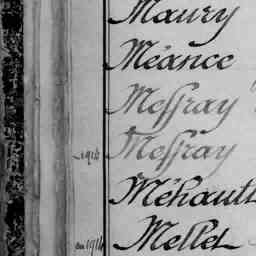 Maury
Méance
Messray
1914 Messray
Méhault
en 1914 Mellet